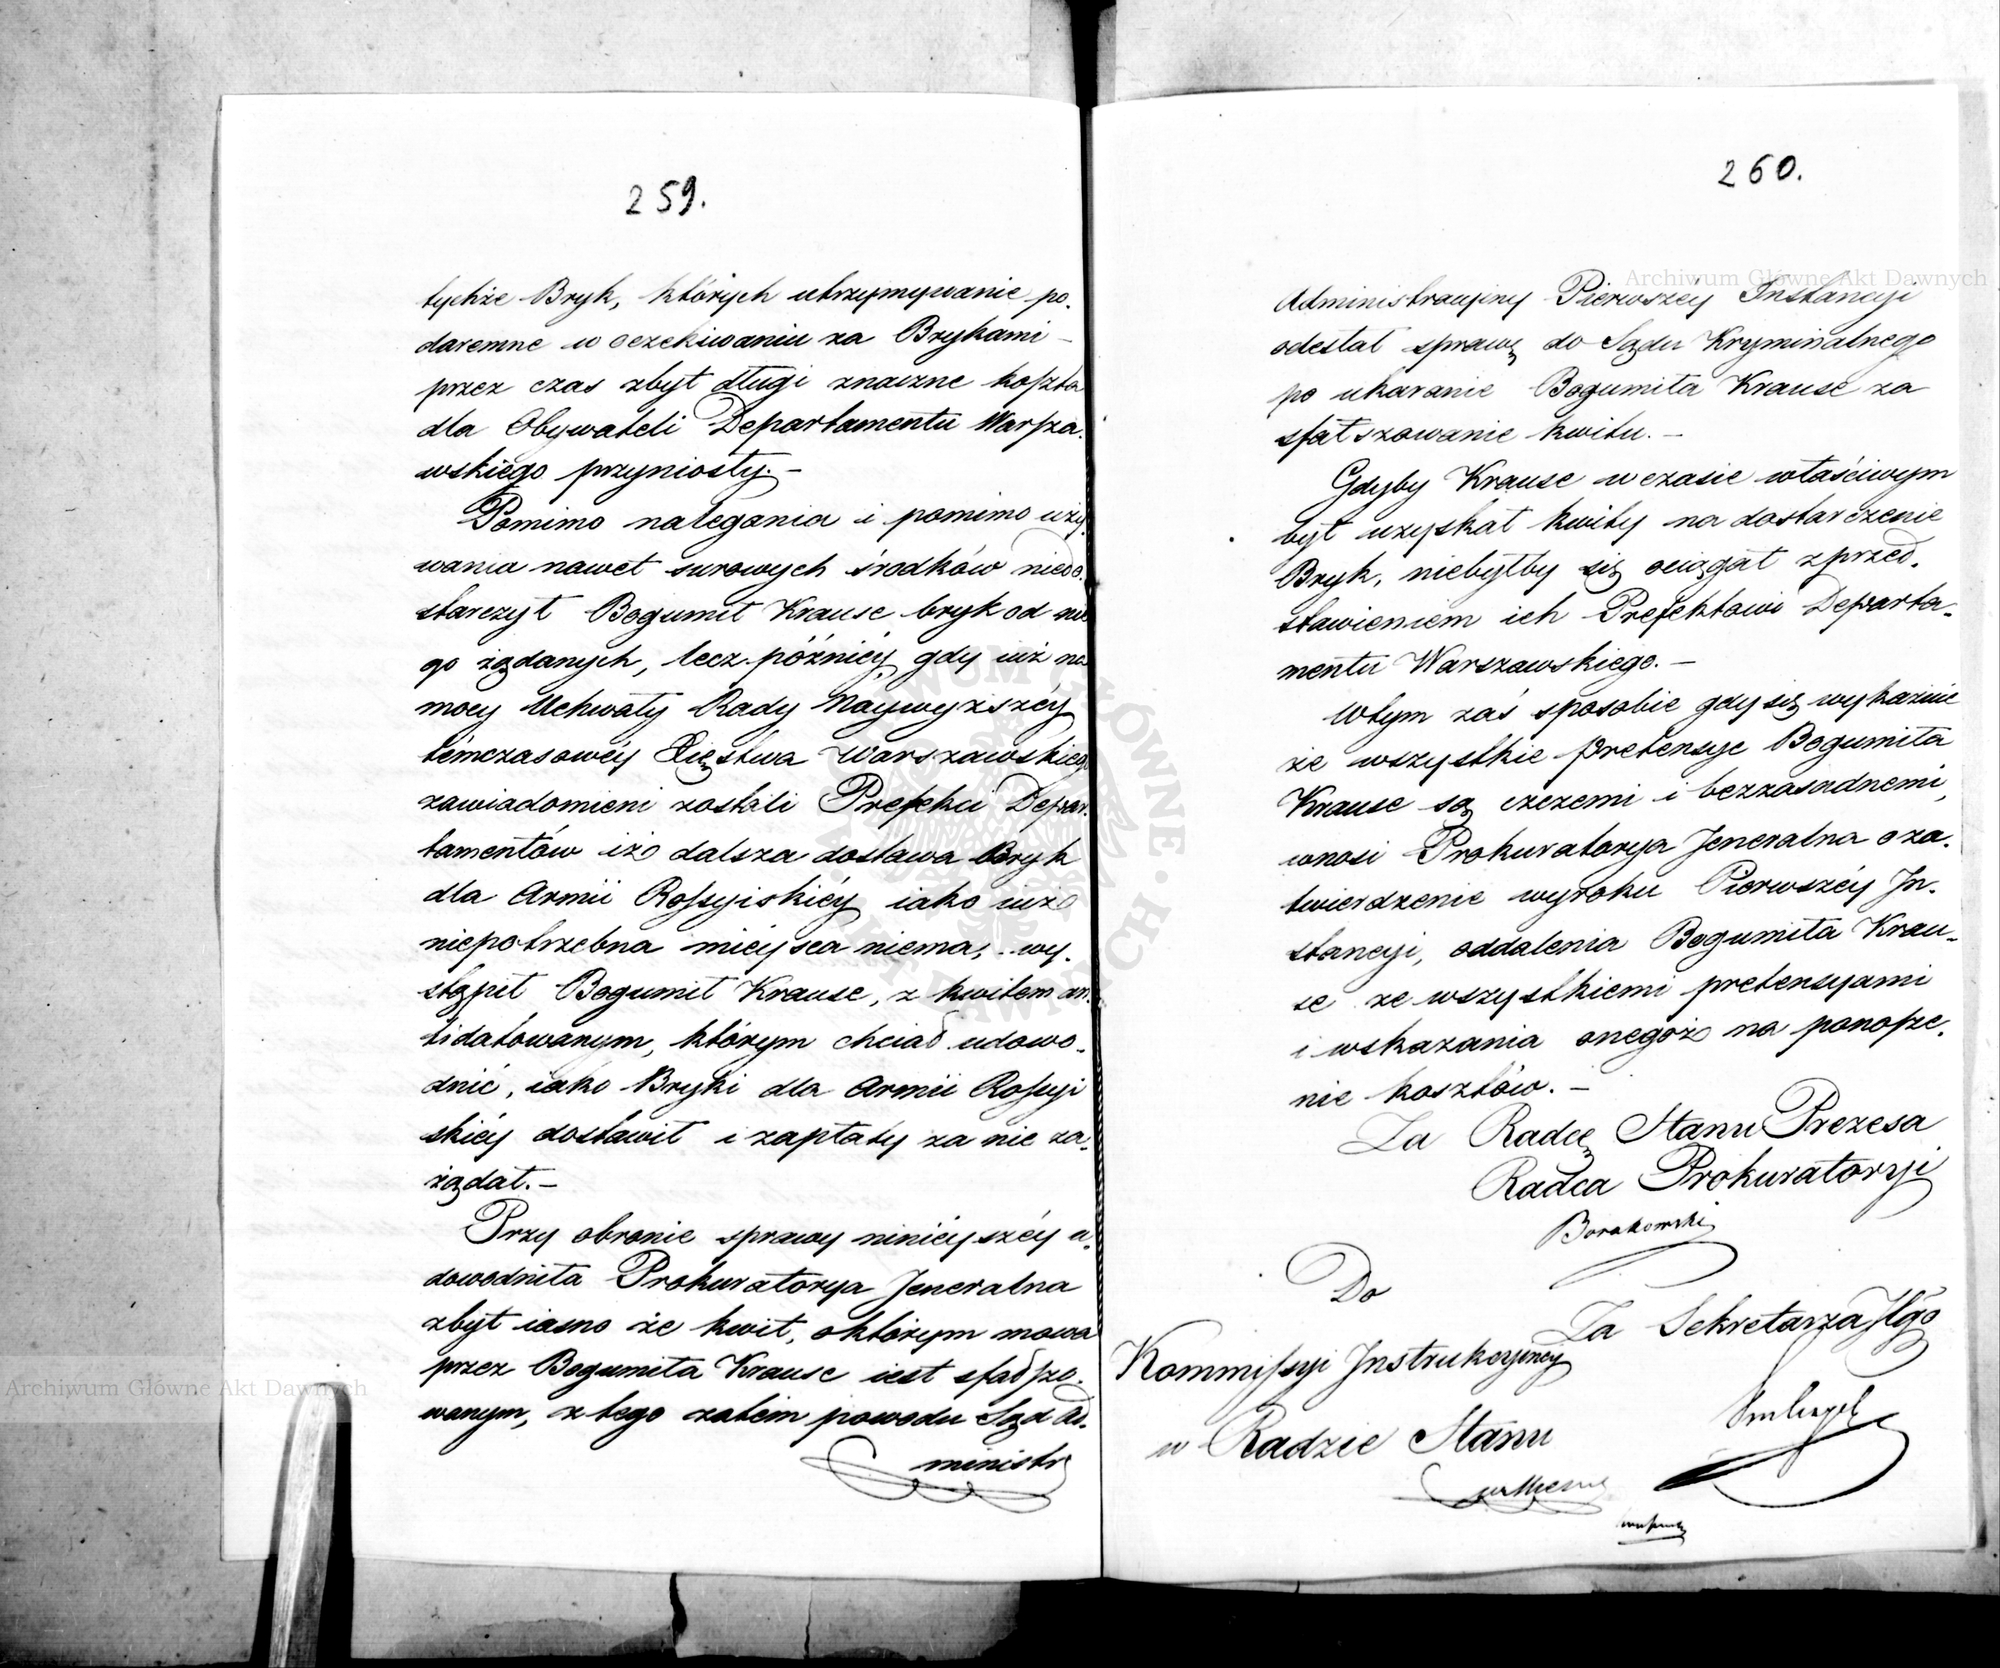 259.
tychże Bryk, których utrzymywanie po-
daremne w oczekiwaniu za Brykami -
przez czas zbyt długi znaczne koszta
dla Obywateli Departamentu Warsza-
wskiego przyniosły. -
Pomimo nalegania i pomimo uży-
wania nawet surowych środków niedo-
starczył Bogumił Krause bryk od nie
go żądanych, lecz późniéy, gdy iuż na
mocy Uchwały Rady Naywyższéy
témczasowéy Xięstwa Warszawskiego
zawiadomieni zostali Prefekci Depar-
tamentów iż dalsza dostawa Bryk
dla Armii Rossyiskiéy iako iuż
niepotrzebna mieysca niema, wy-
stąpił Bogumił Krause, z kwitem an-
tidatowanym, którym chciał udowo-
dnić, iako Bryki dla Armii Rossyi
skiéy dostawił i zapłaty za nie za-
żądał. -
Przy obronie sprawy ninieyszéy u-
dowodniła Prokuratorya Jeneralna
zbyt iasno że kwit, o którym mowa
przez Bogumiła Krause iest sfałszo-
wanym, z tego zatém powodu Sąd Ad-
ministr
260.
Administracyiny Pierwszéy Instancyi
odesłał sprawę do Sądu Kryminalnego
po ukaranie Bogumiła Krause za
sfałszowanie kwitu. -
Gdyby Krause w czasie właściwym
był uzyskał kwity na dostarczenie
Bryk, niebyłby się ociągał z przed-
stawieniem ich Prefektowi Departa-
mentu Warszawskiego. -
W tym zaś sposobie gdy się wykaźuie
że wszystkie pretensye Bogumiła
Krause są czczemi i bezzasadnemi,
wnosi Prokuratorya Jeneralna o za-
twierdzenie wyroku Pierwszéy In-
stancyi, oddalenia Bogumiła Krau-
se ze wszystkiemi pretensyami
i wskazania onegoż na ponosze-
nie kosztów. -
Za Radcę Stanu Prezesa
Radca Prokuratoryi
Borakowski
Do
Za Sekretarza Jlgo
Kommissyi Instrukcyiney
w Radzie Stanu
Archiwum Główne Akt Dawnych
Archiwum Główne Akt Dawnych